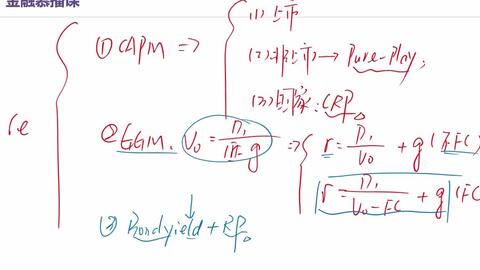 金融慕课
(1) 上市
① CAPM =>
(2) 非上市 → Pure-Play,
(3) 国家: CRP。
re
② GGM. V0 = D1 / r - g => r = D1 / V0 + g (不FC)
r = D1 / V0 - FC + g (FC
③ Bond yield + RP。